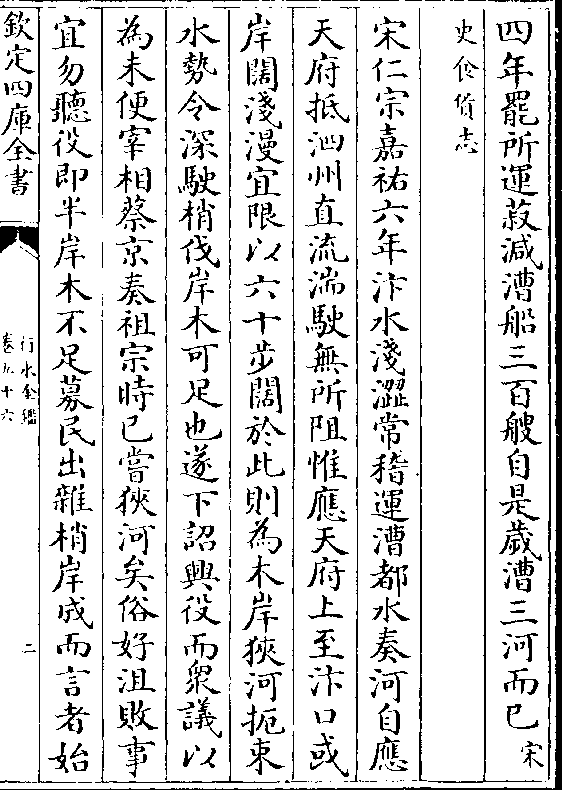 四年罷所運菽減漕船三百艘自是歲漕三河而已宋
史食貨志
宋仁宗嘉祐六年汴水淺澀常稽運漕都水奏河自應
天府抵泗州直流湍駛無所阻惟應天府上至汴口或
岸闊淺漫宜限以六十步闊於此則為木岸狹河扼束
水勢令深駛梢伐岸木可足也遂下詔興役而衆議以
為未便宰相蔡京奏祖宗時已嘗狹河矣俗好沮敗事
宜勿聽役即半岸木不足募民出雜梢岸成而言者始
欽定四庫全書
行水金鑑
卷九十六
二